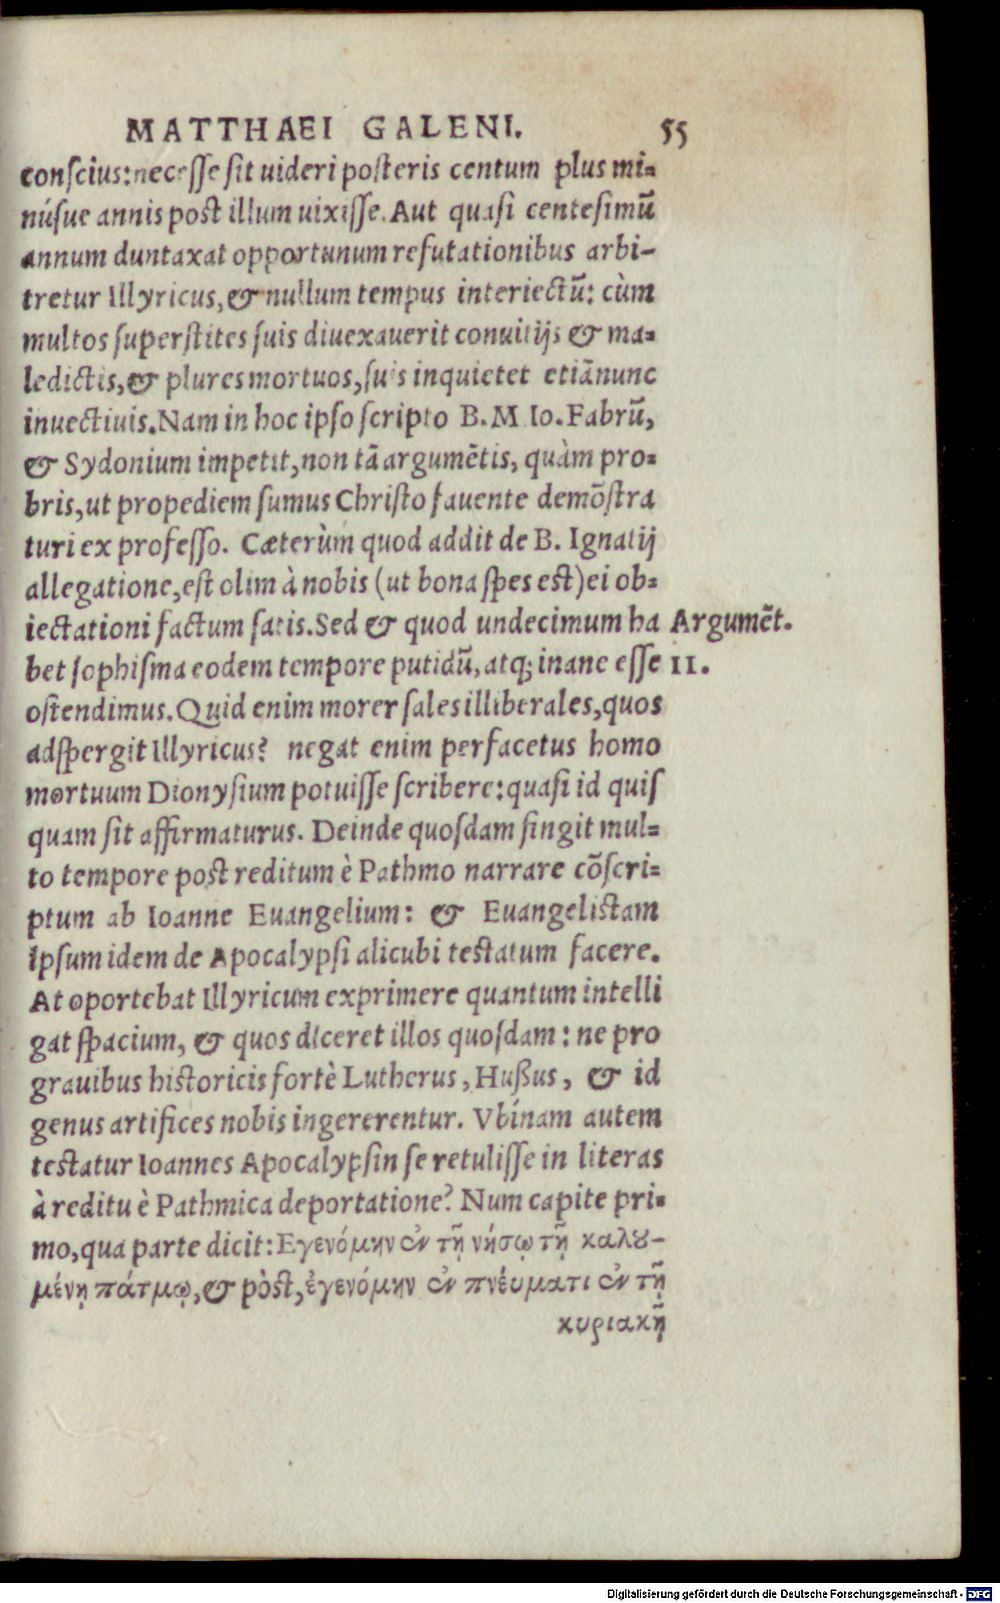 MATTHAEI GALENI. 55
conscius: necesse sit uideri posteris centum plus mi=
núsue annis post illum uixisse. Aut quasi centesimū
annum duntaxat opportunum refutationibus arbi-
tretur Illyricus, & nullum tempus interiectū: cùm
multos superstites suis diuexauerit conuitijs & ma=
ledictis, & plures mortuos, suis inquietet etiānunc
inuectiuis. Nam in hoc ipso scripto B. M Io. Fabrū,
& Sydonium impetit, non tā argumētis, quàm pro=
bris, ut propediem sumus Christo fauente demōstra
turi ex professo. Cæterùm quod addit de B. Ignatij
allegatione, est olim à nobis (ut bona spes est) ei ob=
iectationi factum satis. Sed & quod undecimum ha Argumēt.
bet sophisma eodem tempore putidū, atq; inane esse 11.
ostendimus. Quid enim morer sales illiberales, quos
adspergit Illyricus? negat enim perfacetus homo
mortuum Dionysium potuisse scribere: quasi id quis
quam sit affirmaturus. Deinde quosdam fingit mul=
to tempore post reditum è Pathmo narrare cōscri=
ptum ab Ioanne Euangelium: & Euangelistam
ipsum idem de Apocalypsi alicubi testatum facere.
At oportebat Illyricum exprimere quantum intelli
gat spacium, & quos diceret illos quosdam: ne pro
grauibus historicis fortè Lutherus, Hußus, & id
genus artifices nobis ingererentur. Vbínam autem
testatur Ioannes Apocalypsin se retulisse in literas
à reditu è Pathmica deportatione? Num capite pri=
mo, qua parte dicit: Εγενόμην ἐν τῇ νήσῳ τῇ καλȣ-
μένῃ πάτμῳ, & pòst, ἐγενόμην ἐν πνέυματι ἐν τῇ
κυριακῇ
Digitalisierung gefördert durch die Deutsche Forschungsgemeinschaft - DFG